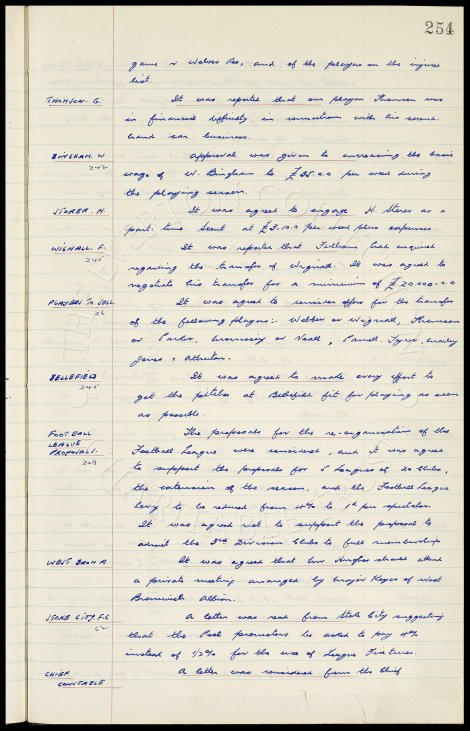 254
game v Wolves Res, and of the players on the injured
list.
THOMSON. G. It was reported that our player Thomson was
in financial difficulty in connection with his second
hand car business.
BINGHAM. W Approval was given to increasing the basic
242 wage of W. Bingham to £35.0.0 per week during
the playing season.
STORER. H. It was agreed to engage H Storer as a
part time scout at £3.10.0 per week plus expenses.
WIGNALL. F. It was reported that Fulham had enquired
245 regarding the transfer of Wignall. It was agreed to
negotiate his transfer for a minimum of £20.000.0.0
PLAYERS TO SELL It was agreed to consider offers for the transfer
26 of the following players:- Webber or Wignall, Thomson
or Parker, or Veall,
Jones & Atherton.
BELLEFIELD It was agreed to make every effort to
245 get the pitches at Bellefield fit for playing as soon
as possible.
FOOTBALL The proposals for the re-organisation of the
LEAGUE Football League were considered, and it was agreed
PROPOSALS. to support the proposals for 5 Leagues of 20 Clubs,
209 the extension of the season, and the Football League
Levy to be reduced from 4% to 1d per spectator.
It was agreed not to support the proposal to
admit the 3rd Division Clubs to full membership
WEST BROM A It was agreed that Mr Hughes should attend
a private meeting arranged by Major Keys of West
Bromwich Albion.
STOKE CITY. F.C A letter was read from Stoke City suggesting
62 that the Pool promoters be asked to pay 4%
instead of 1/2% for the use of League Fixtures.
CHIEF A letter was considered from the Chief
CONSTABLE